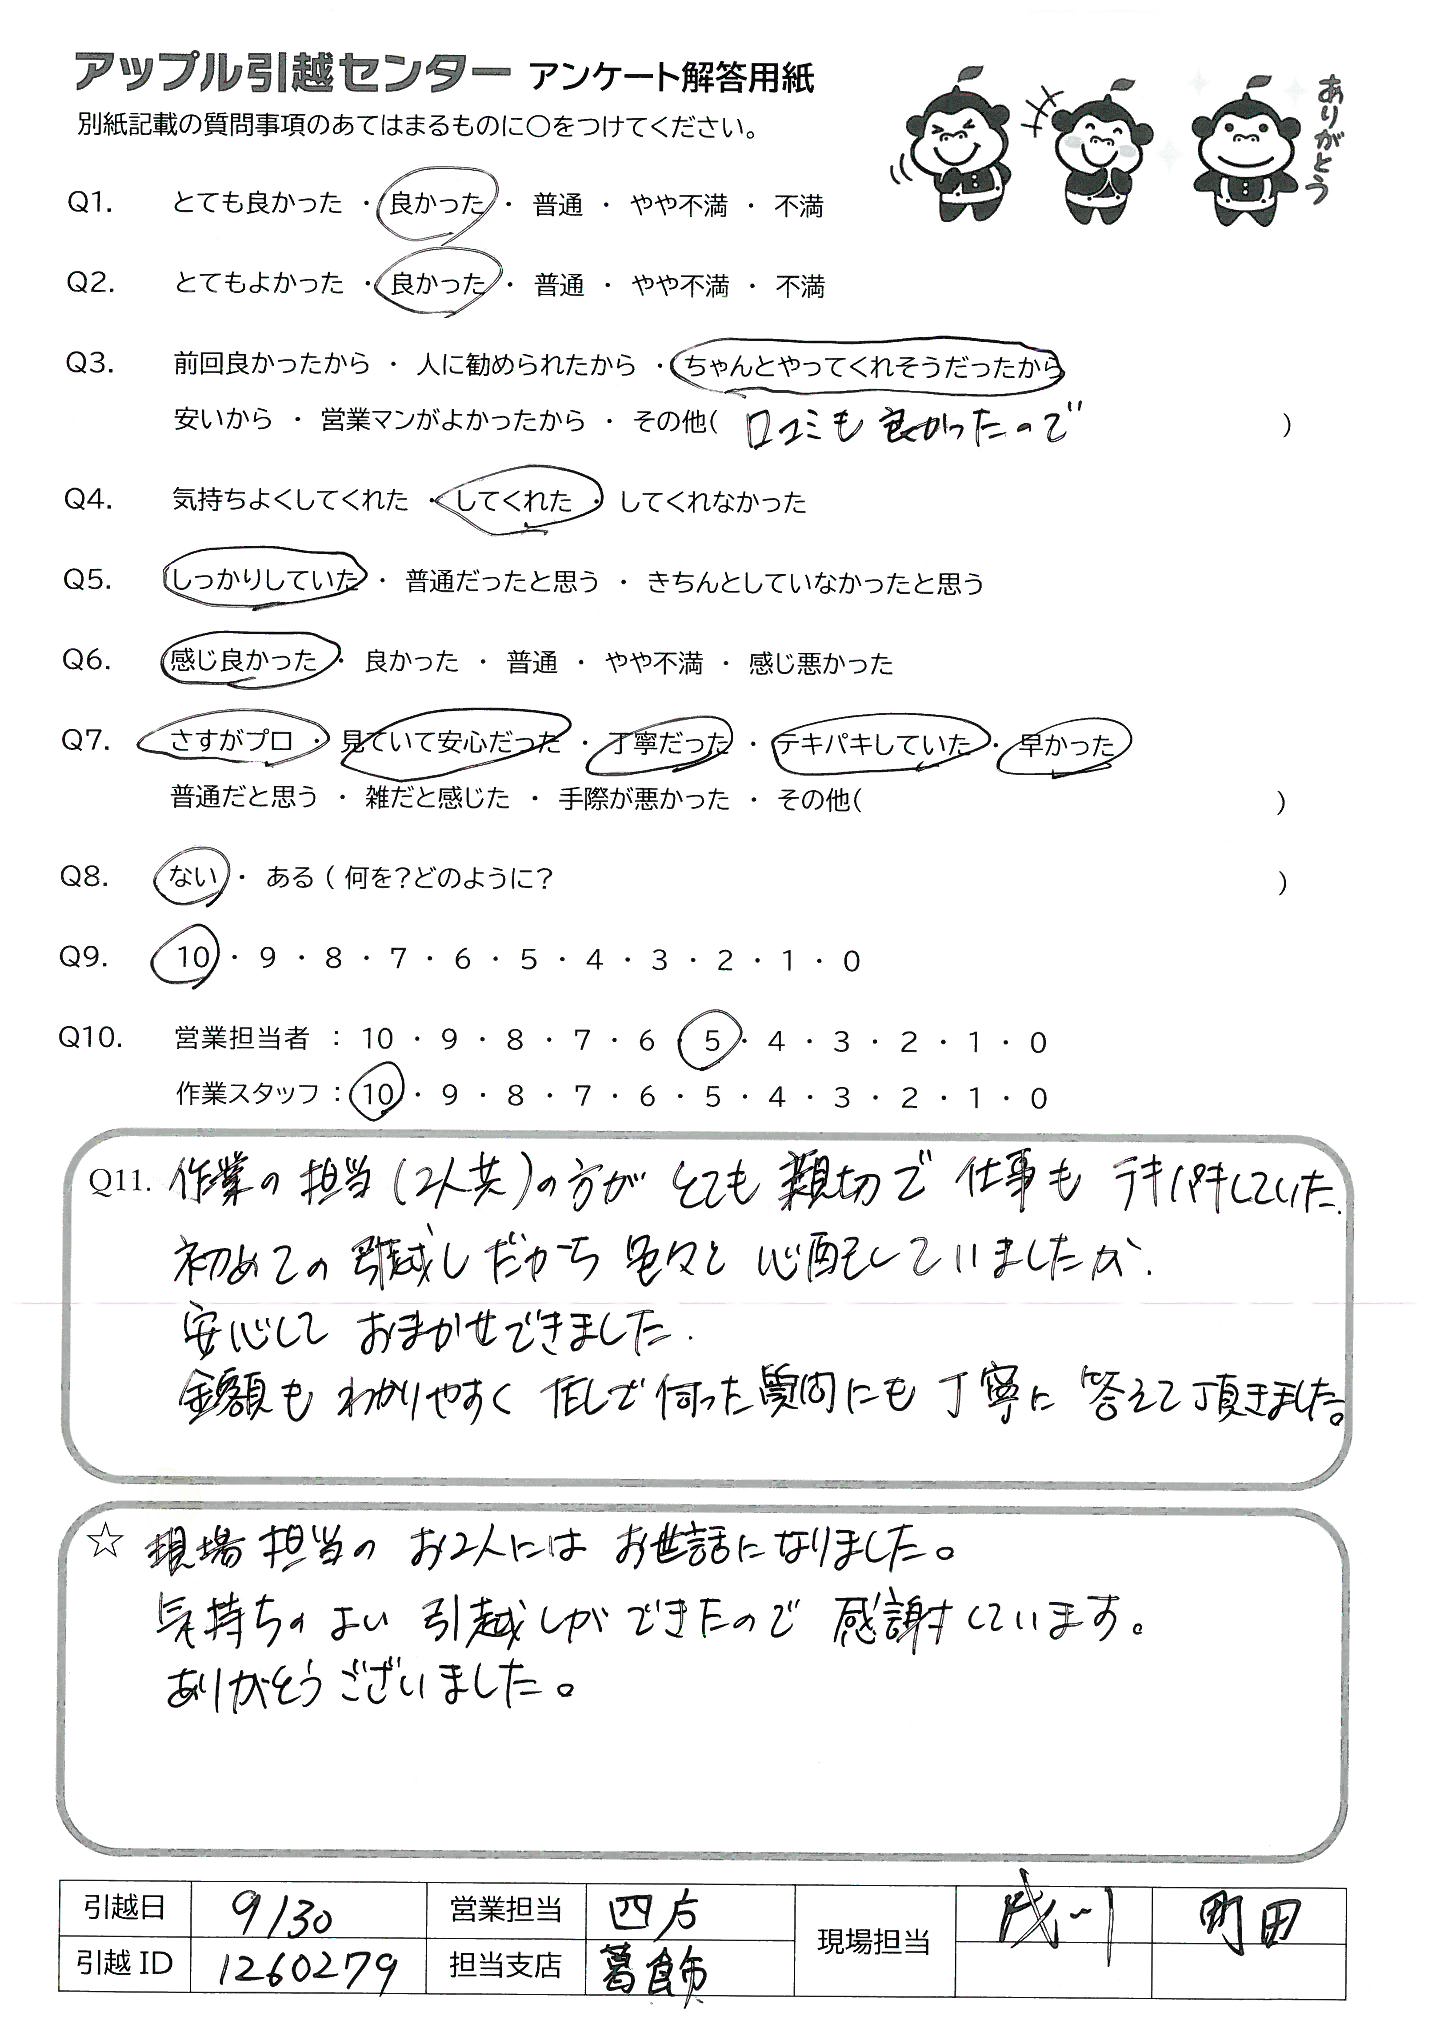 アップル引越センター アンケート解答用紙
別紙記載の質問事項のあてはまるものに○をつけてください。
ありがとう
Q1. とても良かった ・ 良かった ・ 普通 ・ やや不満 ・ 不満
Q2. とてもよかった ・ 良かった ・ 普通 ・ やや不満 ・ 不満
Q3. 前回良かったから ・ 人に勧められたから ・ ちゃんとやってくれそうだったから
安いから ・ 営業マンがよかったから ・ その他( 口コミも良かったので )
Q4. 気持ちよくしてくれた ・ してくれた ・ してくれなかった
Q5. しっかりしていた ・ 普通だったと思う ・ きちんとしていなかったと思う
Q6. 感じ良かった ・ 良かった ・ 普通 ・ やや不満 ・ 感じ悪かった
Q7. さすがプロ ・ 見ていて安心だった ・ 丁寧だった ・ テキパキしていた ・ 早かった
普通だと思う ・ 雑だと感じた ・ 手際が悪かった ・ その他( )
Q8. ない ・ ある ( 何を?どのように? )
Q9. 10 ・ 9 ・ 8 ・ 7 ・ 6 ・ 5 ・ 4 ・ 3 ・ 2 ・ 1 ・ 0
Q10. 営業担当者 : 10 ・ 9 ・ 8 ・ 7 ・ 6 ・ 5 ・ 4 ・ 3 ・ 2 ・ 1 ・ 0
作業スタッフ : 10 ・ 9 ・ 8 ・ 7 ・ 6 ・ 5 ・ 4 ・ 3 ・ 2 ・ 1 ・ 0
Q11. 作業の担当(2人共)の方がとても親切で仕事もテキパキしていた.
初めての引越しだから色々と心配していましたが.
安心しておまかせできました.
金額もわかりやすく で伺った質問にも丁寧に答えて頂きました。
☆ 現場担当のお2人にはお世話になりました。
気持ちのよい引越しができたので感謝しています。
ありがとうございました。
引越日 9/30 営業担当 四方 現場担当 町田
引越 ID 1260279 担当支店 葛飾